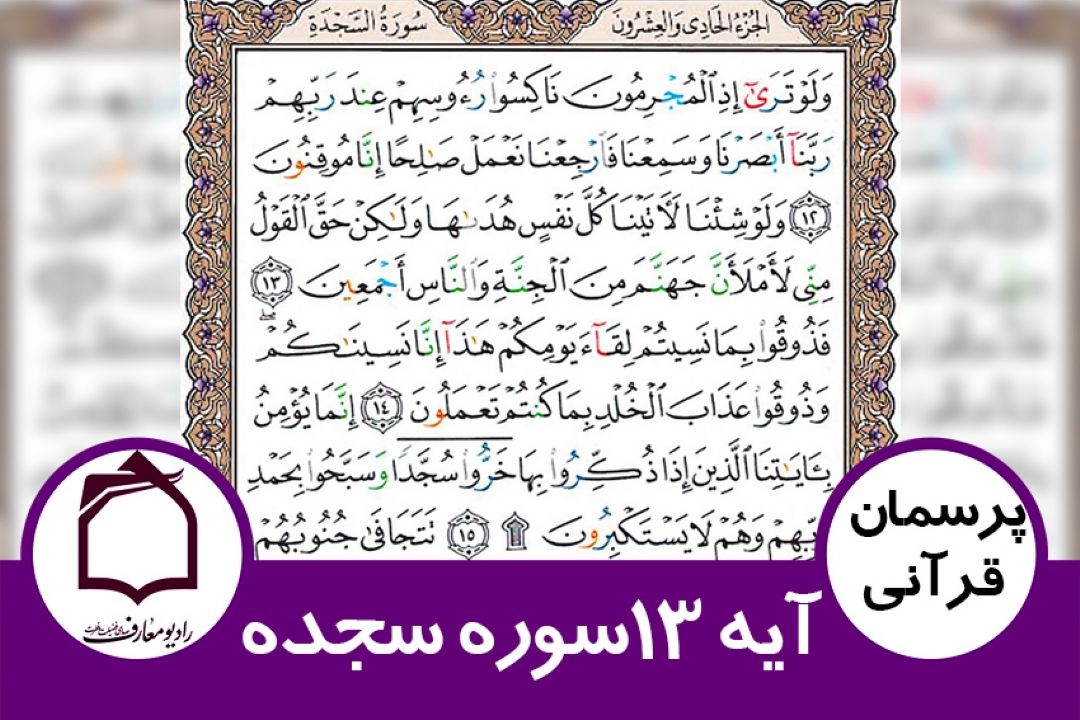 الجُزْءُ الحَادِي وَالعِشْرُونَ
سُورَةُ السَّجْدَةِ
وَلَوْ تَرَىٰٓ إِذِ ٱلْمُجْرِمُونَ نَاكِسُوا۟ رُءُوسِهِمْ عِندَ رَبِّهِمْ
رَبَّنَآ أَبْصَرْنَا وَسَمِعْنَا فَٱرْجِعْنَا نَعْمَلْ صَٰلِحًا إِنَّا مُوقِنُونَ
١٢ وَلَوْ شِئْنَا لَأٓتَيْنَا كُلَّ نَفْسٍ هُدَىٰهَا وَلَٰكِنْ حَقَّ ٱلْقَوْلُ
مِنِّي لَأَمْلَأَنَّ جَهَنَّمَ مِنَ ٱلْجِنَّةِ وَٱلنَّاسِ أَجْمَعِينَ ١٣
فَذُوقُوا۟ بِمَا نَسِيتُمْ لِقَآءَ يَوْمِكُمْ هَٰذَآ إِنَّا نَسِينَٰكُمْ
وَذُوقُوا۟ عَذَابَ ٱلْخُلْدِ بِمَا كُنتُمْ تَعْمَلُونَ ١٤ إِنَّمَا يُؤْمِنُ
بِـَٔايَٰتِنَا ٱلَّذِينَ إِذَا ذُكِّرُوا۟ بِهَا خَرُّوا۟ سُجَّدًا وَسَبَّحُوا۟ بِحَمْدِ
رَبِّهِمْ وَهُمْ لَا يَسْتَكْبِرُونَ ۩ ١٥ تَتَجَافَىٰ جُنُوبُهُمْ
پرسمان
قرآنی
رادیو معارف
آیه ۱۳ سوره سجده